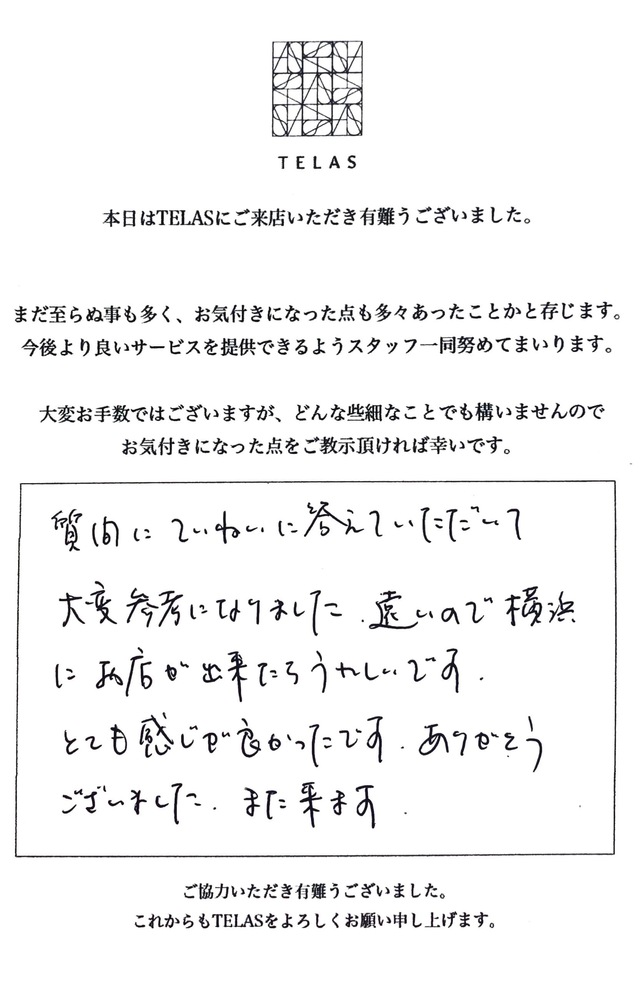 TELAS
本日はTELASにご来店いただき有難うございました。
まだ至らぬ事も多く、お気付きになった点も多々あったことかと存じます。
今後より良いサービスを提供できるようスタッフ一同努めてまいります。
大変お手数ではございますが、どんな些細なことでも構いませんので
お気付きになった点をご教示頂ければ幸いです。
質問にていねいに答えていただいて
大変参考になりました.遠いので横浜
にお店が出来たらうれしいです.
とても感じが良かったです.ありがとう
ございました.また来ます.
ご協力いただき有難うございました。
これからもTELASをよろしくお願い申し上げます。